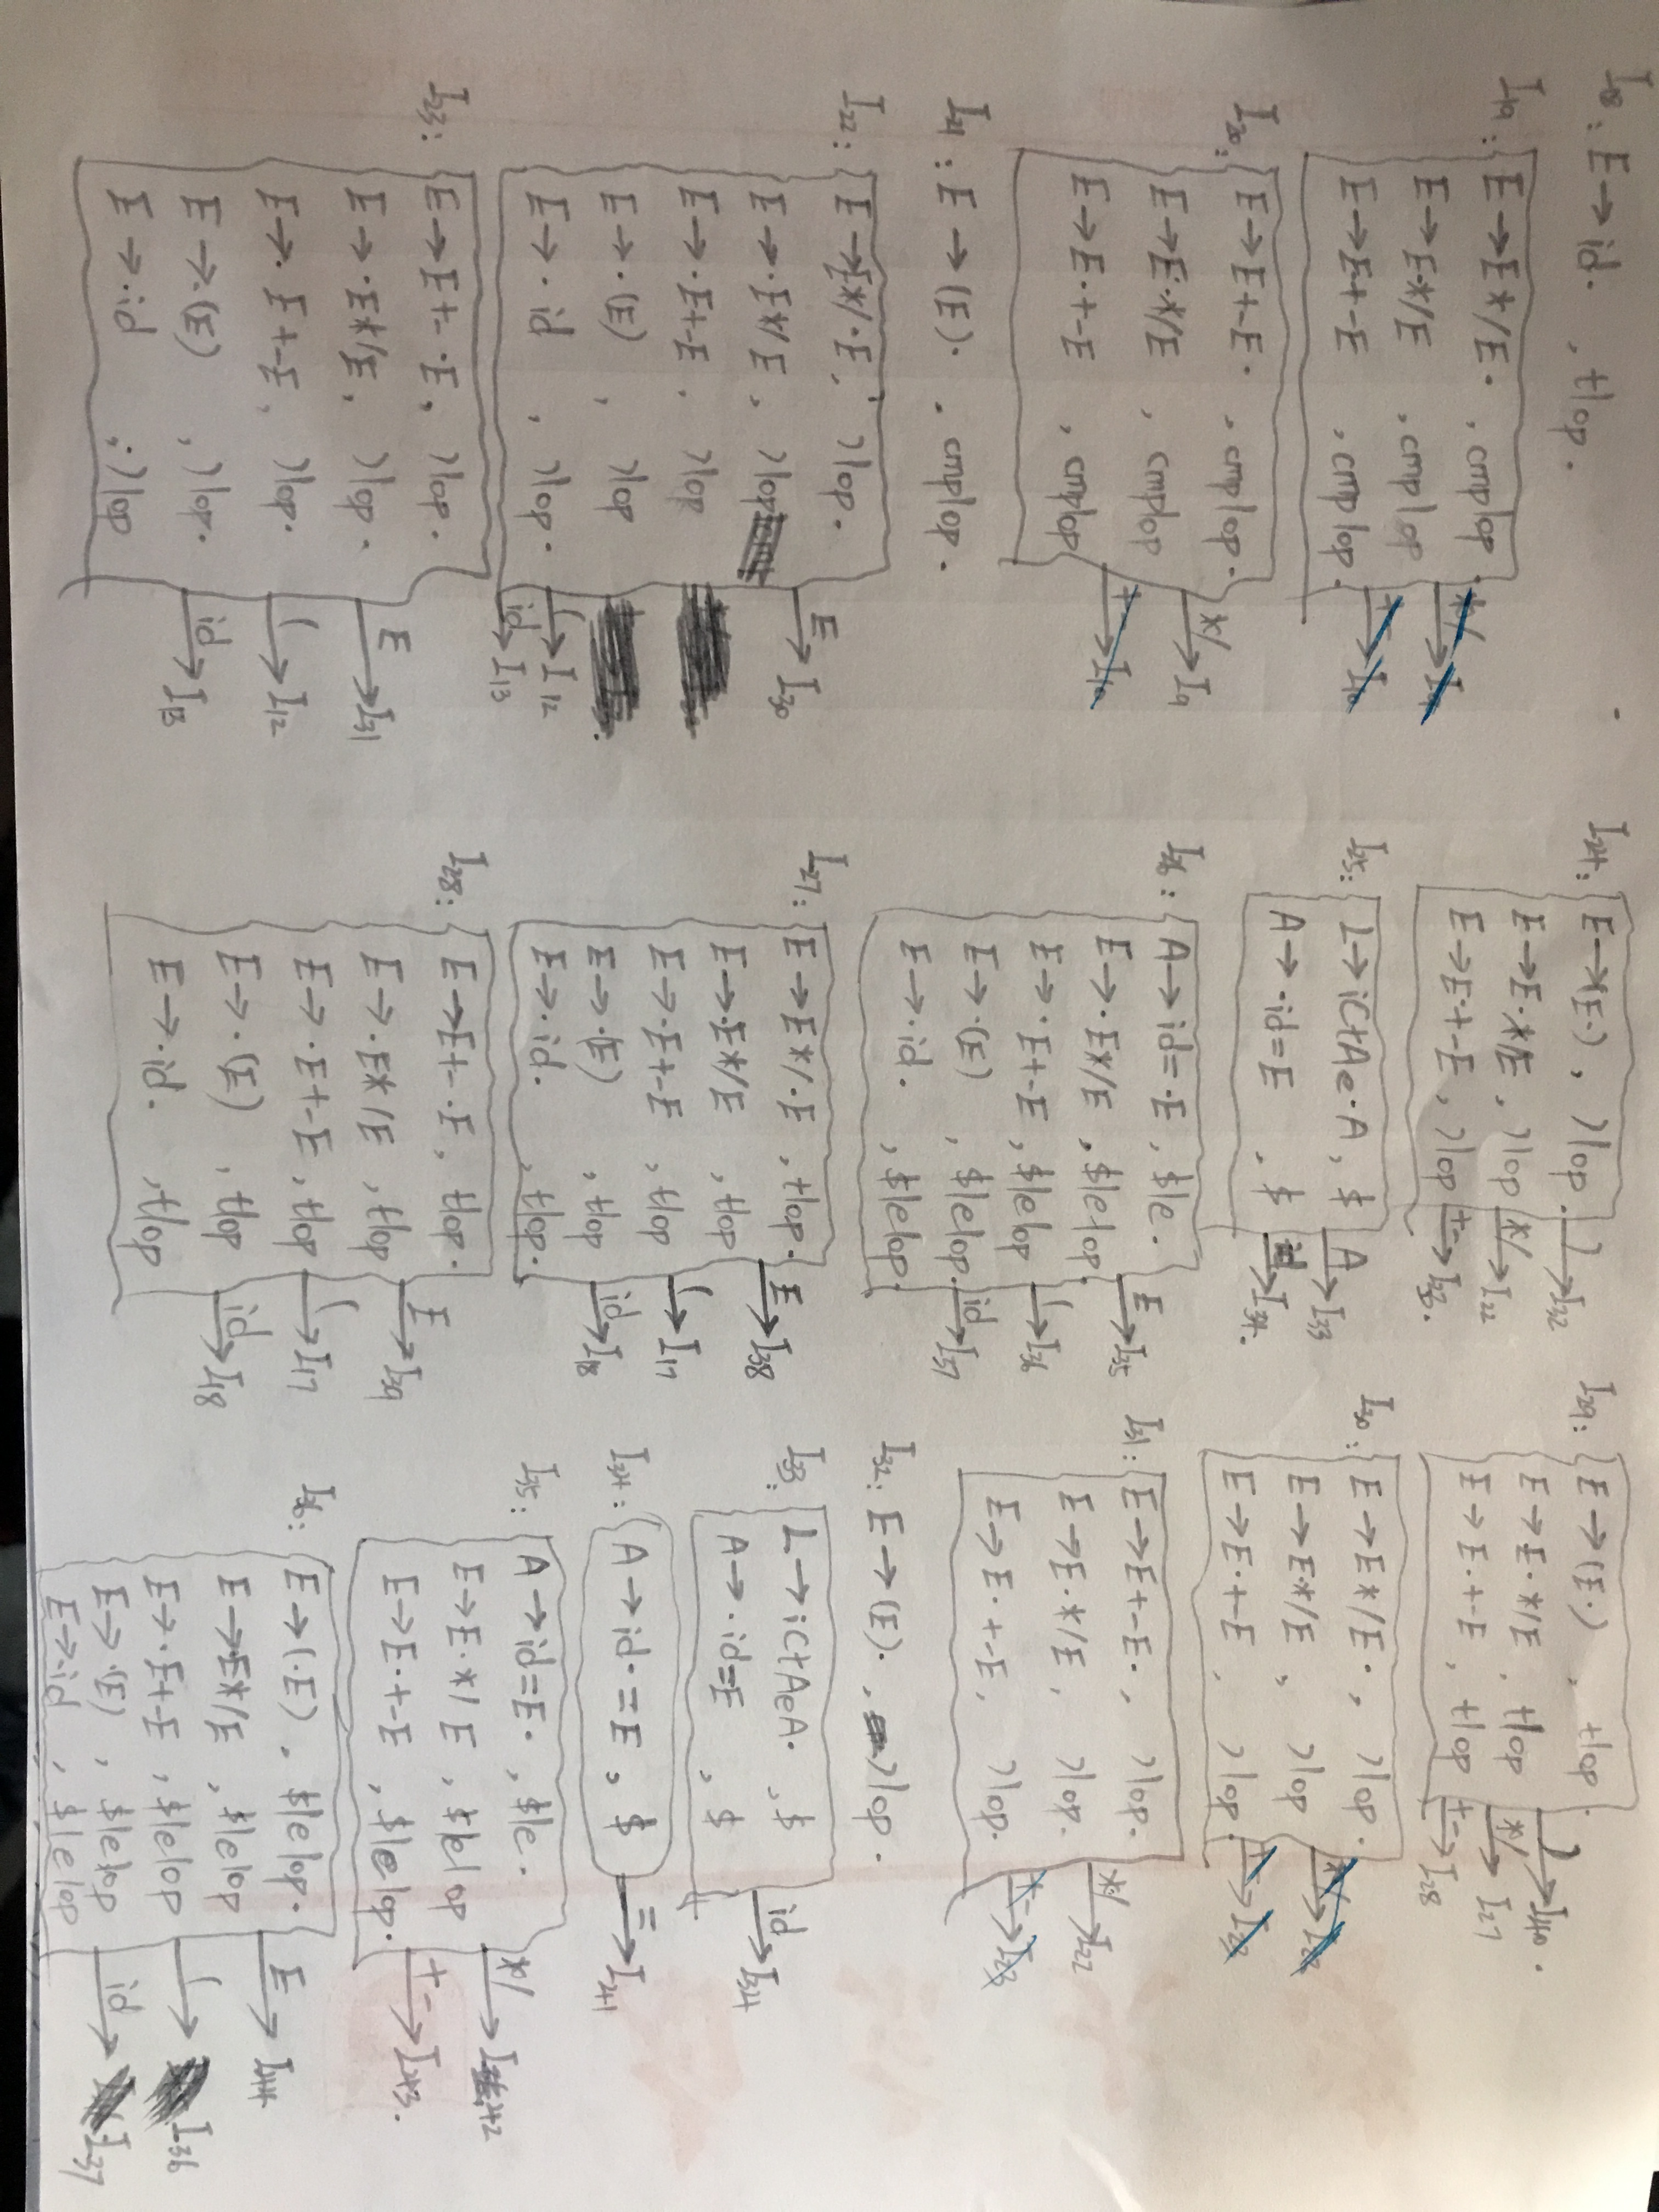 I18: E→id· , t|op.
I19: E→E*/E· , cmp|op.
E→E·*/E , cmp|op
E→E·+-E , cmp|op.
*/ → I9
+- → I10
I20: E→E+-E· , cmp|op.
E→E·*/E , cmp|op
E→E·+-E , cmp|op
*/ → I9
+- → I10
I21: E→(E)· , cmp|op.
I22: E→E*/·E, )|op.
E→·E*/E, )|op
E→·E+-E, )|op
E→·(E) , )|op
E→·id , )|op.
E → I30
( → I12
id → I13
I23: E→E+-·E, )|op.
E→·E*/E, )|op.
E→·E+-E, )|op.
E→·(E) , )|op.
E→·id , )|op
E → I31
( → I12
id → I13
I24: E→(E·), )|op.
E→E·*/E, )|op
E→E·+-E, )|op
) → I32
*/ → I22
+- → I23.
I25: L→iCtAe·A, $
A→·id=E , $
A → I33
id → I34.
I26: A→id=·E, $|e.
E→·E*/E , $|e|op.
E→·E+-E , $|e|op
E→·(E) , $|e|op.
E→·id. , $|e|op.
E → I35
( → I36
id → I37
I27: E→E*/·E , t|op.
E→·E*/E , t|op
E→·E+-E , t|op
E→·(E) , t|op
E→·id. , t|op.
E → I38
( → I17
id → I18
I28: E→E+-·E, t|op.
E→·E*/E , t|op
E→·E+-E , t|op
E→·(E) , t|op
E→·id. , t|op
E → I39
( → I17
id → I18
I29: E→(E·) , t|op
E→E·*/E , t|op
E→E·+-E , t|op
) → I40.
*/ → I27
+- → I28
I30: E→E*/E· , )|op.
E→E·*/E , )|op
E→E·+-E , )|op.
*/ → I22
+- → I23
I31: E→E+-E· , )|op.
E→E·*/E, )|op.
E→E·+-E, )|op.
*/ → I22
+- → I23
I32: E→(E)· , )|op.
I33: L→iCtAeA· , $
A→·id=E , $
id → I34
I34: A→id·=E , $
= → I41
I35: A→id=E· , $|e.
E→E·*/E , $|e|op
E→E·+-E , $|e|op.
*/ → I42
+- → I43.
I36: E→(·E) , $|e|op.
E→·E*/E , $|e|op
E→·E+-E , $|e|op
E→·(E) , $|e|op
E→·id , $|e|op
E → I44
( → I36
id → I37